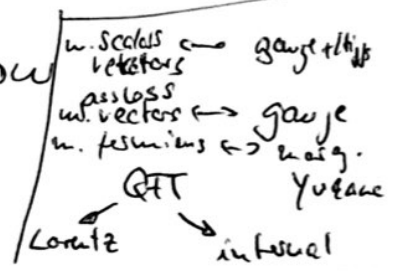 ow
m. scalars ↔ gauge + Higgs
vectors
massless
m. vectors ↔ gauge
m. fermions ↔ marg.
Yukawa
QFT
Lorentz internal